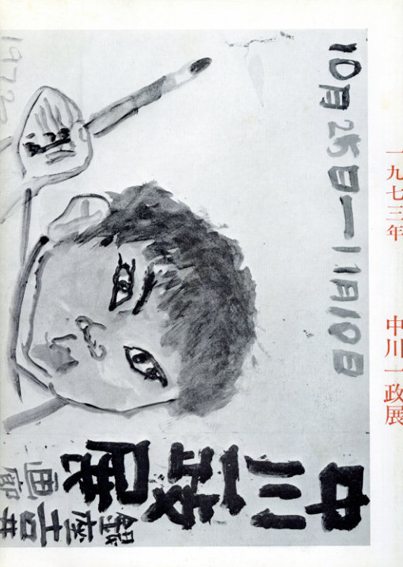 一九七三年 中川一政展
10月25日―11月10日
中川一政展
銀座吉井
画廊